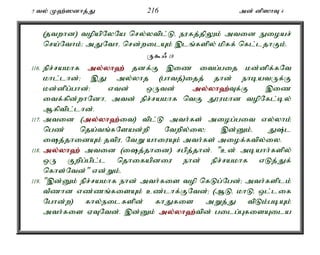 5 வல் முஹ்ஸனாத்து 216 அன் னிஸாவு 4
(தவறான) வழியிலேயே செல்லவிட்டு, நரகத்திலும் அவனை நுழையச்
செய்வோம்; அதுவோ, சென்றடையும் இடங்களில் மிகக் கெட்டதாகும்.
ருகூஃ 18
116. நிச்சயமாக அல்லாஹ் தனக்கு இணை வைப்பதை மன்னிக்கவே
மாட்டான்; இது அல்லாத (பாவத்)தைத் தான் நாடியவருக்கு
மன்னிப்பான்; எவன் ஒருவன் அல்லாஹ்வுக்கு இணை
வைக்கின்றானோ, அவன் நிச்சயமாக வெகு தூரமான வழிகேட்டில்
ஆகிவிட்டான்.
117. அவனை (அல்லாஹ்வை) விட்டு அவர்கள் அழைப்பவை எல்லாம்
பெண் தெய்வங்களேயன்றி வேறில்லை; இன்னும், துஷ்ட
ஷைத்தானையும் தவிர, வேறு யாரையும் அவர்கள் அழைக்கவில்லை.
118. அல்லாஹ் அவனை (ஷைத்தானை) சபித்தான். "உன் அடியார்களில்
ஒரு குறிப்பிட்ட தொகையினரை நான் நிச்சயமாக எடுத்துக்
கொள்வேன்" என்றும்,
119. "இன்னும் நிச்சயமாக நான் அவர்களை வழி கெடுப்பேன்; அவர்களிடம்
வீணான எண்ணங்களையும் உண்டாக்குவேன்; (ஆடு, மாடு, ஒட்டகை
போன்ற) கால்நடைகளின் காதுகளை அறுத்து விடும்படியும்
அவர்களை ஏவுவேன். இன்னும் அல்லாஹ்வின் படைப்புகளையுடைய